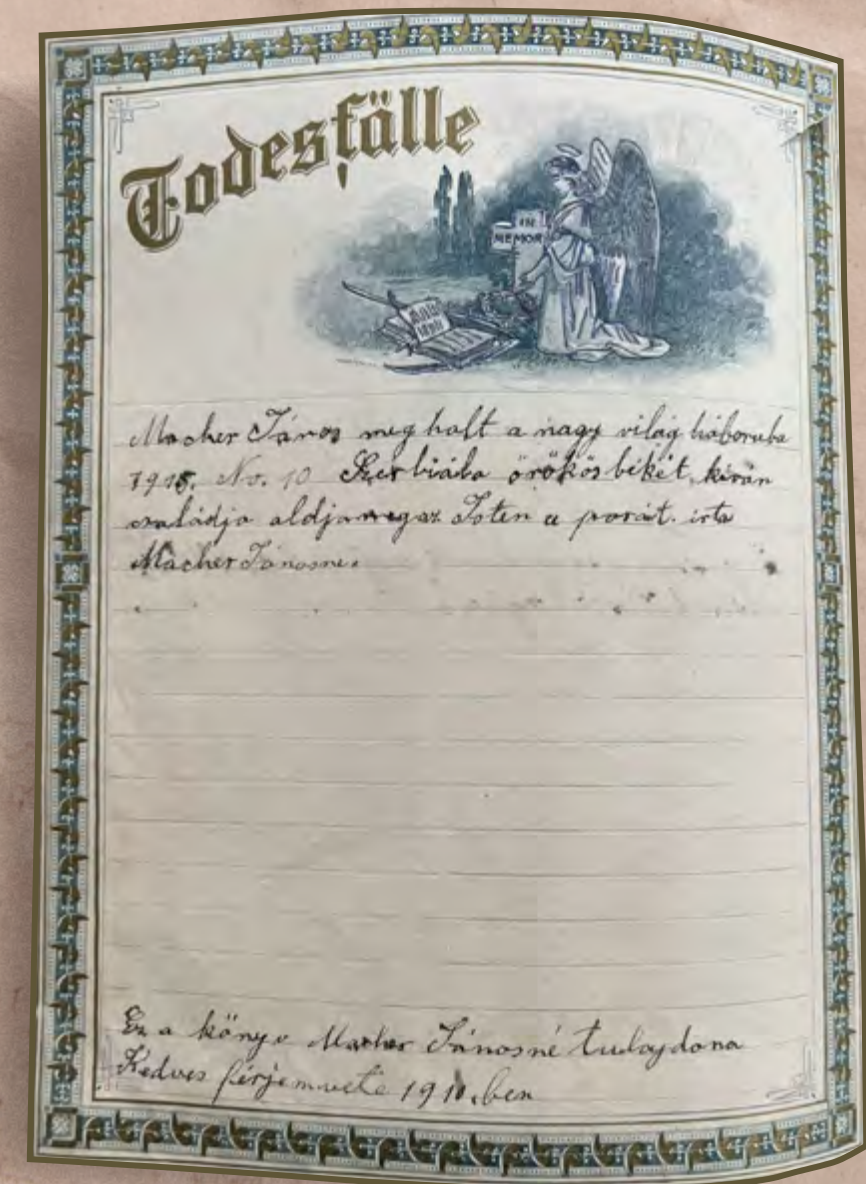 Todesfälle
IN
MEMOR
Macher János meg halt a nagy világ háboruba
1915. Nv. 10 Szerbiába örökös békét kíván
családja aldja meg az Isten a porát. irta
Macher Jánosne.
Ez a könyv Macher Jánosné tulajdona
Kedves férjem vete 1910.ben